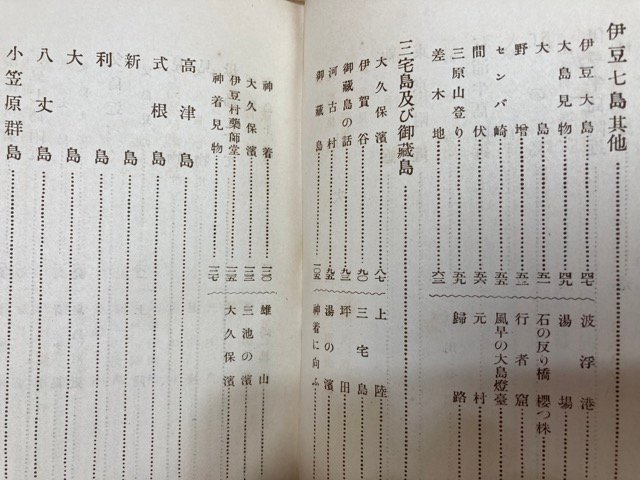 伊豆七島其他
伊豆大島……四七
大島見物……四九
大島……五一
野増……五三
センバ崎……五五
間伏……五六
三原山登り……五九
差木地……六三
波浮港
湯場
石の反り橋 櫻つ株
行者窟
風早の大島燈臺
元村
歸路
三宅島及び御藏島
大久保濱……八七
伊賀谷……九〇
御藏島の話……九三
河古村……九五
御藏島……一〇五
上陸
三宅島
坪田
湯の濱
神着に向ふ
神着……一二〇
大久保濱……一三三
伊豆村藥師堂……一三五
神着見物……一三七
雄山
三池の濱
大久保濱
高津島
式根島
新島
利島
大島
八丈島
小笠原群島